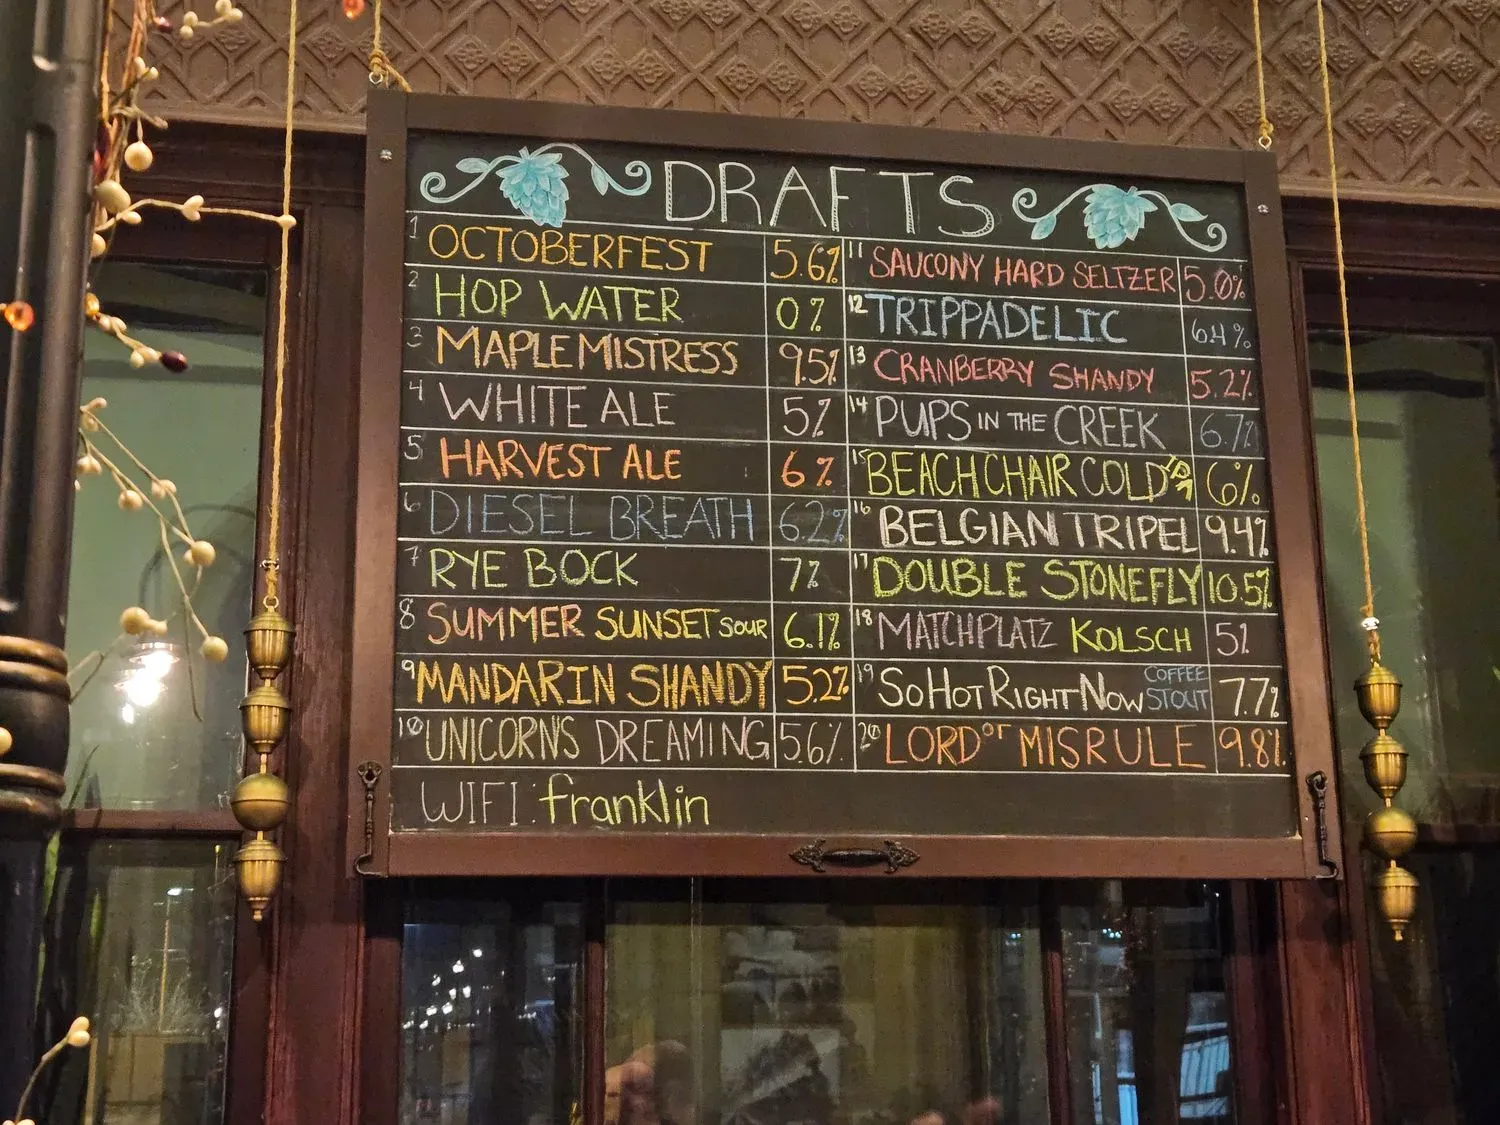 DRAFTS
1 OCTOBERFEST 5.6%
2 HOP WATER 0%
3 MAPLE MISTRESS 9.5%
4 WHITE ALE 5%
5 HARVEST ALE 6%
6 DIESEL BREATH 6.2%
7 RYE BOCK 7%
8 SUMMER SUNSET SOUR 6.1%
9 MANDARIN SHANDY 5.2%
10 UNICORN'S DREAMING 5.6%
11 SAUCONY HARD SELTZER 5.0%
12 TRIPPADELIC 6.4%
13 CRANBERRY SHANDY 5.2%
14 PUPS IN THE CREEK 6.7%
15 BEACH CHAIR COLD 6%
16 BELGIAN TRIPEL 9.4%
17 DOUBLE STONEFLY 10.5%
18 MATCHPLATZ KOLSCH 5%
19 SO HOT RIGHT NOW COFFEE STOUT 7.7%
20 LORD OF MISRULE 9.8%
WIFI: franklin